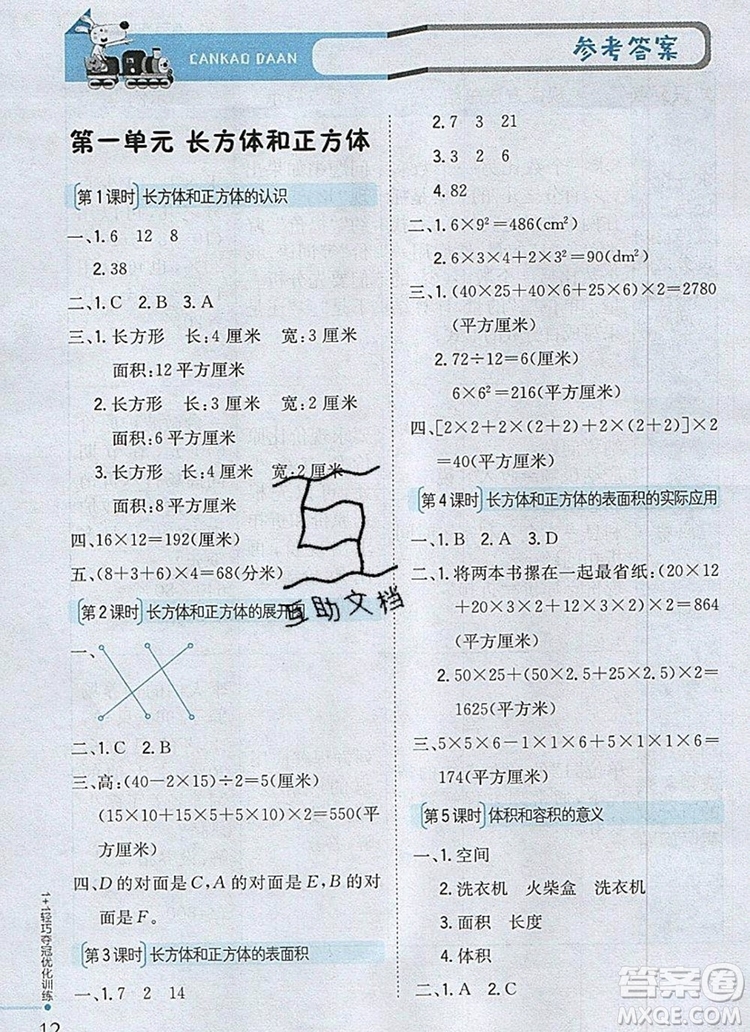 CANKAO DAAN
参考答案
第一单元 长方体和正方体
第1课时 长方体和正方体的认识
一、1.6 12 8
2.38
二、1.C 2.B 3.A
三、1.长方形 长:4厘米 宽:3厘米
面积:12平方厘米
2.长方形 长:3厘米 宽:2厘米
面积:6平方厘米
3.长方形 长:4厘米 宽:2厘米
面积:8平方厘米
四、16×12=192(厘米)
五、(8+3+6)×4=68(分米)
第2课时 长方体和正方体的展开图
一、
二、1.C 2.B
三、高:(40-2×15)÷2=5(厘米)
(15×10+15×5+10×5)×2=550(平
方厘米)
四、D的对面是C,A的对面是E,B的对
面是F。
第3课时 长方体和正方体的表面积
一、1.7 2 14
2.7 3 21
3.3 2 6
4.82
二、1.6×9²=486(cm²)
2.6×3×4+2×3²=90(dm²)
三、1.(40×25+40×6+25×6)×2=2780
(平方厘米)
2.72÷12=6(厘米)
6×6²=216(平方厘米)
四、[2×2+2×(2+2)+2×(2+2)]×2
=40(平方厘米)
第4课时 长方体和正方体的表面积的实际应用
一、1.B 2.A 3.D
二、1.将两本书摞在一起最省纸:(20×12
+20×3×2+12×3×2)×2=864
(平方厘米)
2.50×25+(50×2.5+25×2.5)×2=
1625(平方厘米)
三、5×5×6-1×1×6+5×1×6=
174(平方厘米)
第5课时 体积和容积的意义
一、1.空间
2.洗衣机 火柴盒 洗衣机
3.面积 长度
4.体积
互助文档
1+1轻巧夺冠优化训练
12
答案圈
MXQE.COM